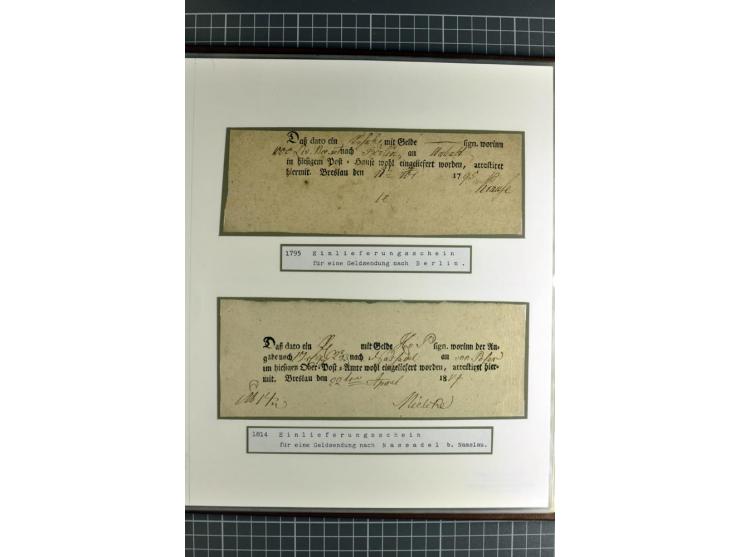 Daß dato ein mit Gelde sign. worinn
nach Berlin an
in hiesigem Post-Hause wohl eingeliefert worden, attestiret
hiermit. Breslau den 1795 Krause
1795 Einlieferungsschein
für eine Geldsendung nach Berlin.
Daß dato ein mit Gelde sign. worinn der An-
gabe nach nach an
im hiesigen Ober-Post-Amte wohl eingeliefert worden, attestiret hier-
mit. Breslau den 22ten April 18
1814 Einlieferungsschein
für eine Geldsendung nach Nassadel b. Namslau.